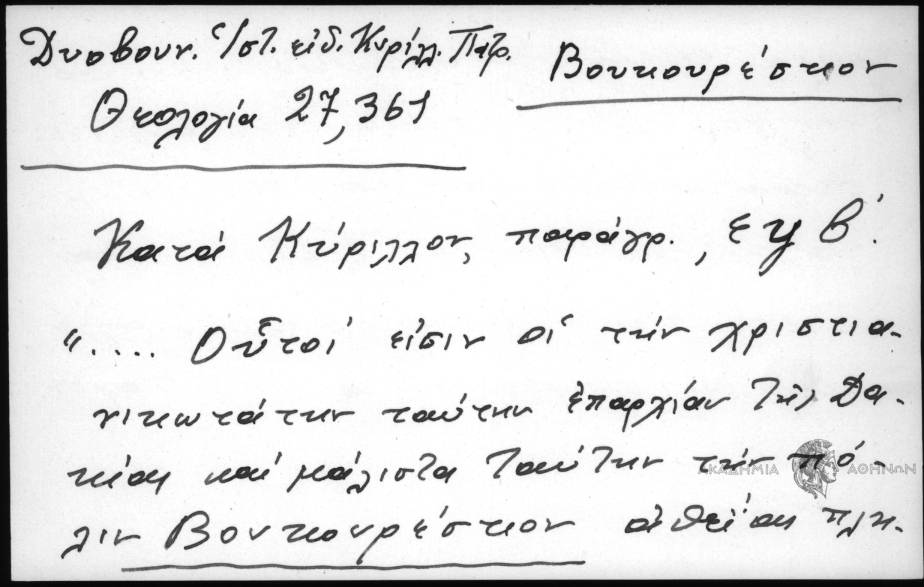 Δυοβουν. Ἱστ. εἰδ. Κυρίλλ. Πατρ.
Βουκουρέστιον
Θεολογία 27, 361
Κατά Κύριλλον, παράγρ. , ςγ β΄.
".... Οὗτοί εἰσιν οἱ τήν χριστια-
νικωτάτην ταύτην ἐπαρχίαν τῆς Δα-
κίας καί μάλιστα ταύτην τήν πό-
λιν Βουκουρέστιον ἀθεΐας πλη-
ΑΚΑΔΗΜΙΑ ΑΘΗΝΩΝ